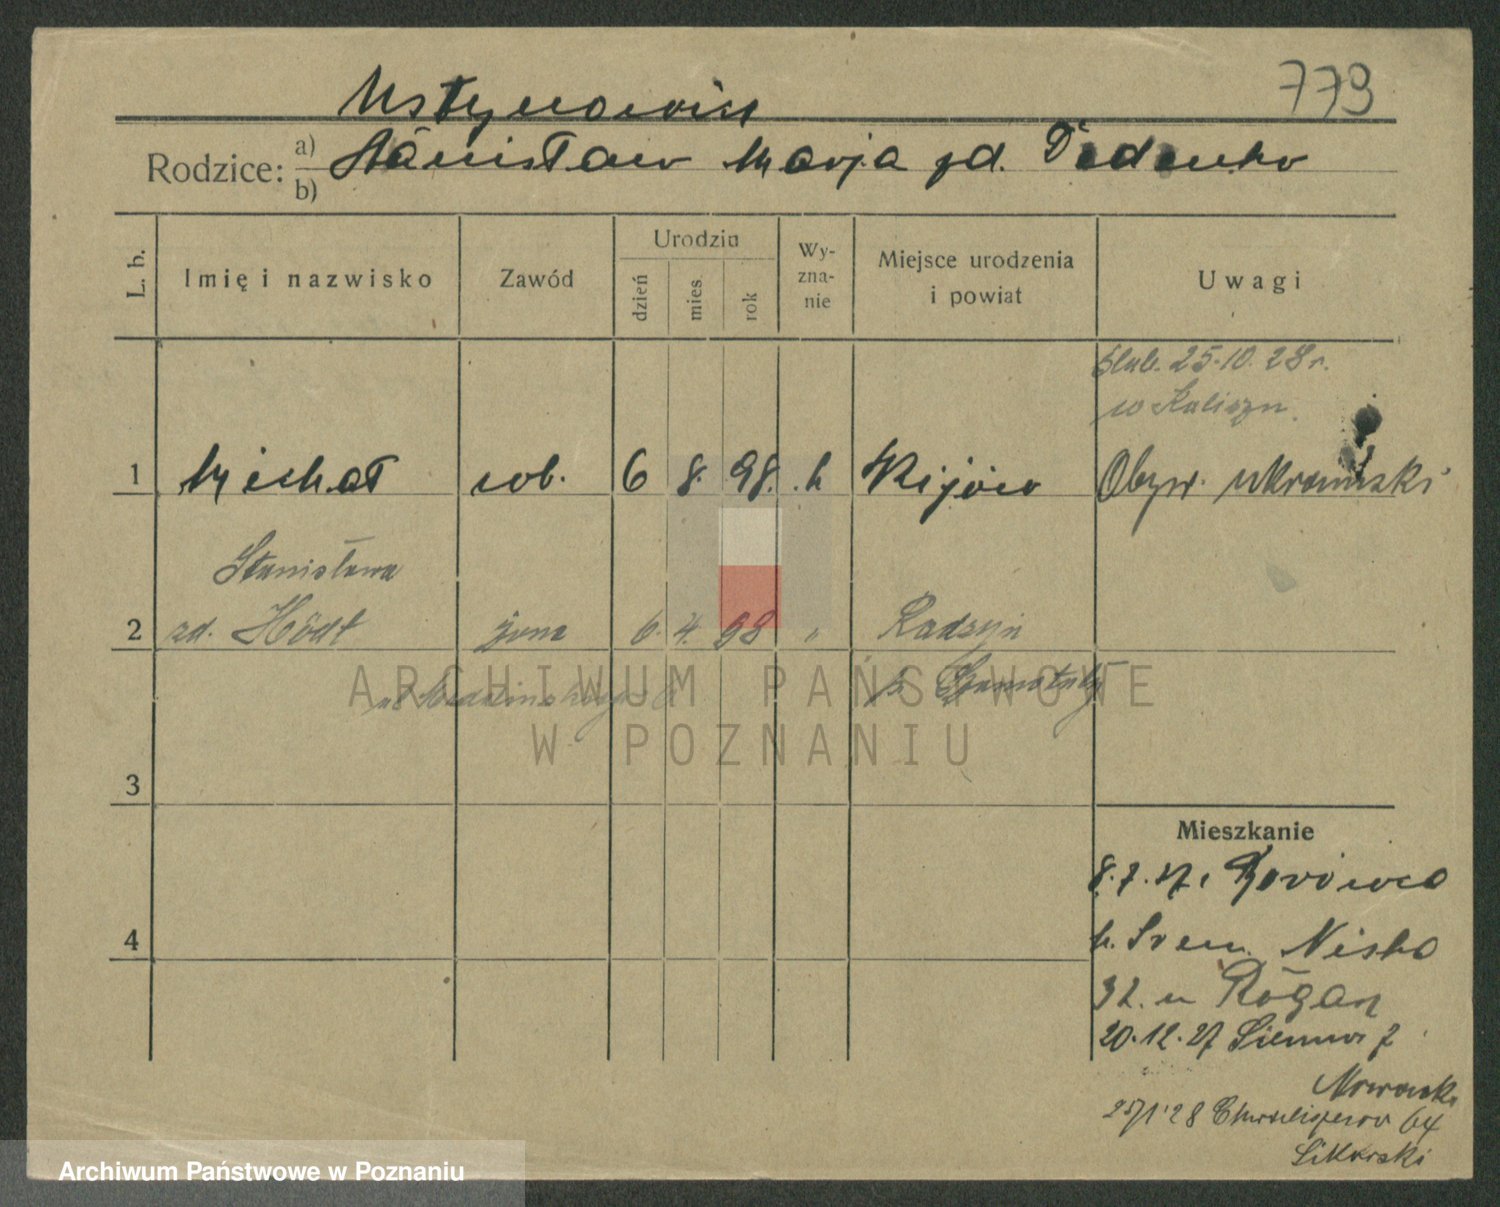 779
Ustynowicz
Rodzice: a) Stanisław Marja zd. Dedenko
b)
L. b.
Imię i nazwisko
Zawód
Urodziu
dzień
mies
rok
Wy-
zna-
nie
Miejsce urodzenia
i powiat
Uwagi
ślub. 25.10.28 r.
w Kaliszu.
1 Michał rob. 6 8. 98. k Kijów Obyw. ukraiński
Stanisława
2 zd. Hödt żona 6. 4. 98 " Radzyń
p. Szamotuły
ARCHIWUM PAŃSTWOWE
W POZNANIU
3
Mieszkanie
8.7.27.
4
k. Śrem. Niska
32. u Rogan
20.12.27 Sienna 7
Nowowski
25/1 28 64
Sikorski
Archiwum Państwowe w Poznaniu